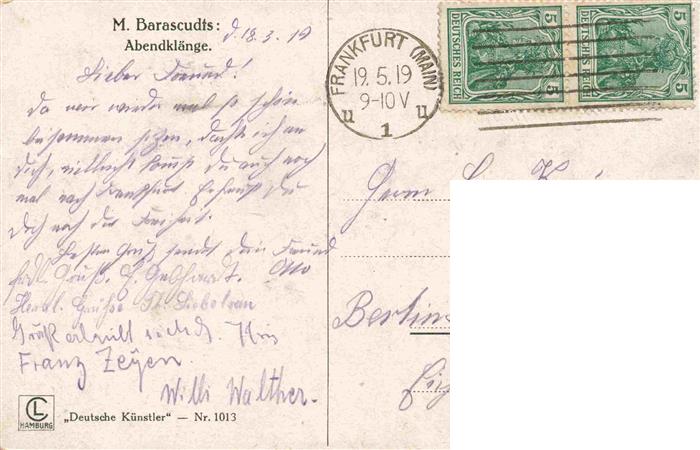 M. Barascudts:
Abendklänge.
d. 18.5.19
Lieber Freund!
Da wir wieder mal so schön
beisammen sitzen, dachte ich an
Dich, vielleicht kommst Du auch noch
mal nach Frankfurt. Du
Dich nach der Freiheit.
Besten Gruß sendet dein Freund
Otto
Gruß. E. Gebhardt.
Herzl. Grüße
Gruß erlaubt sich d.
Franz Zeyen.
Willi Walther.
CL
HAMBURG
„Deutsche Künstler“ — Nr. 1013
FRANKFURT (MAIN)
19.5.19
9-10 V
u 1 u
5 5
DEUTSCHES REICH
5 5
DEUTSCHES REICH
Herrn
Berlin